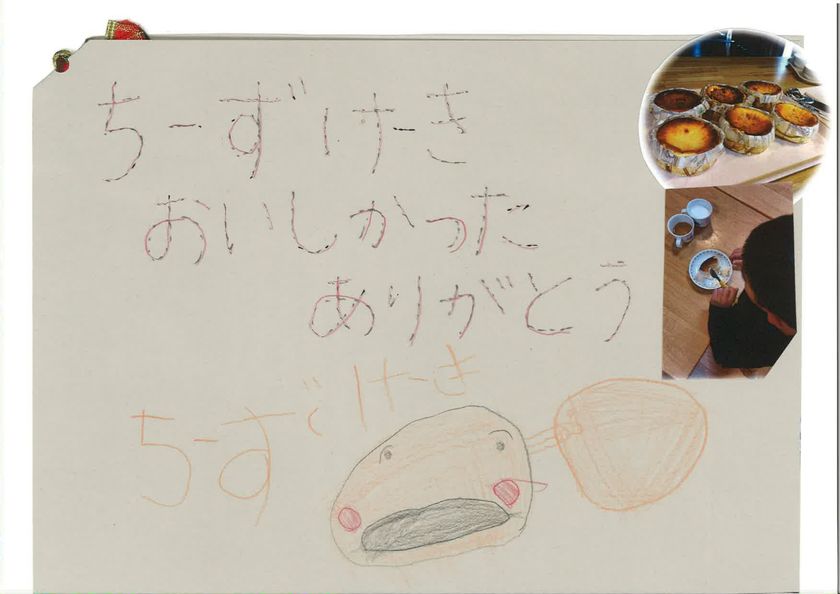 ちーずけーき
おいしかった
ありがとう
ちーずけーき